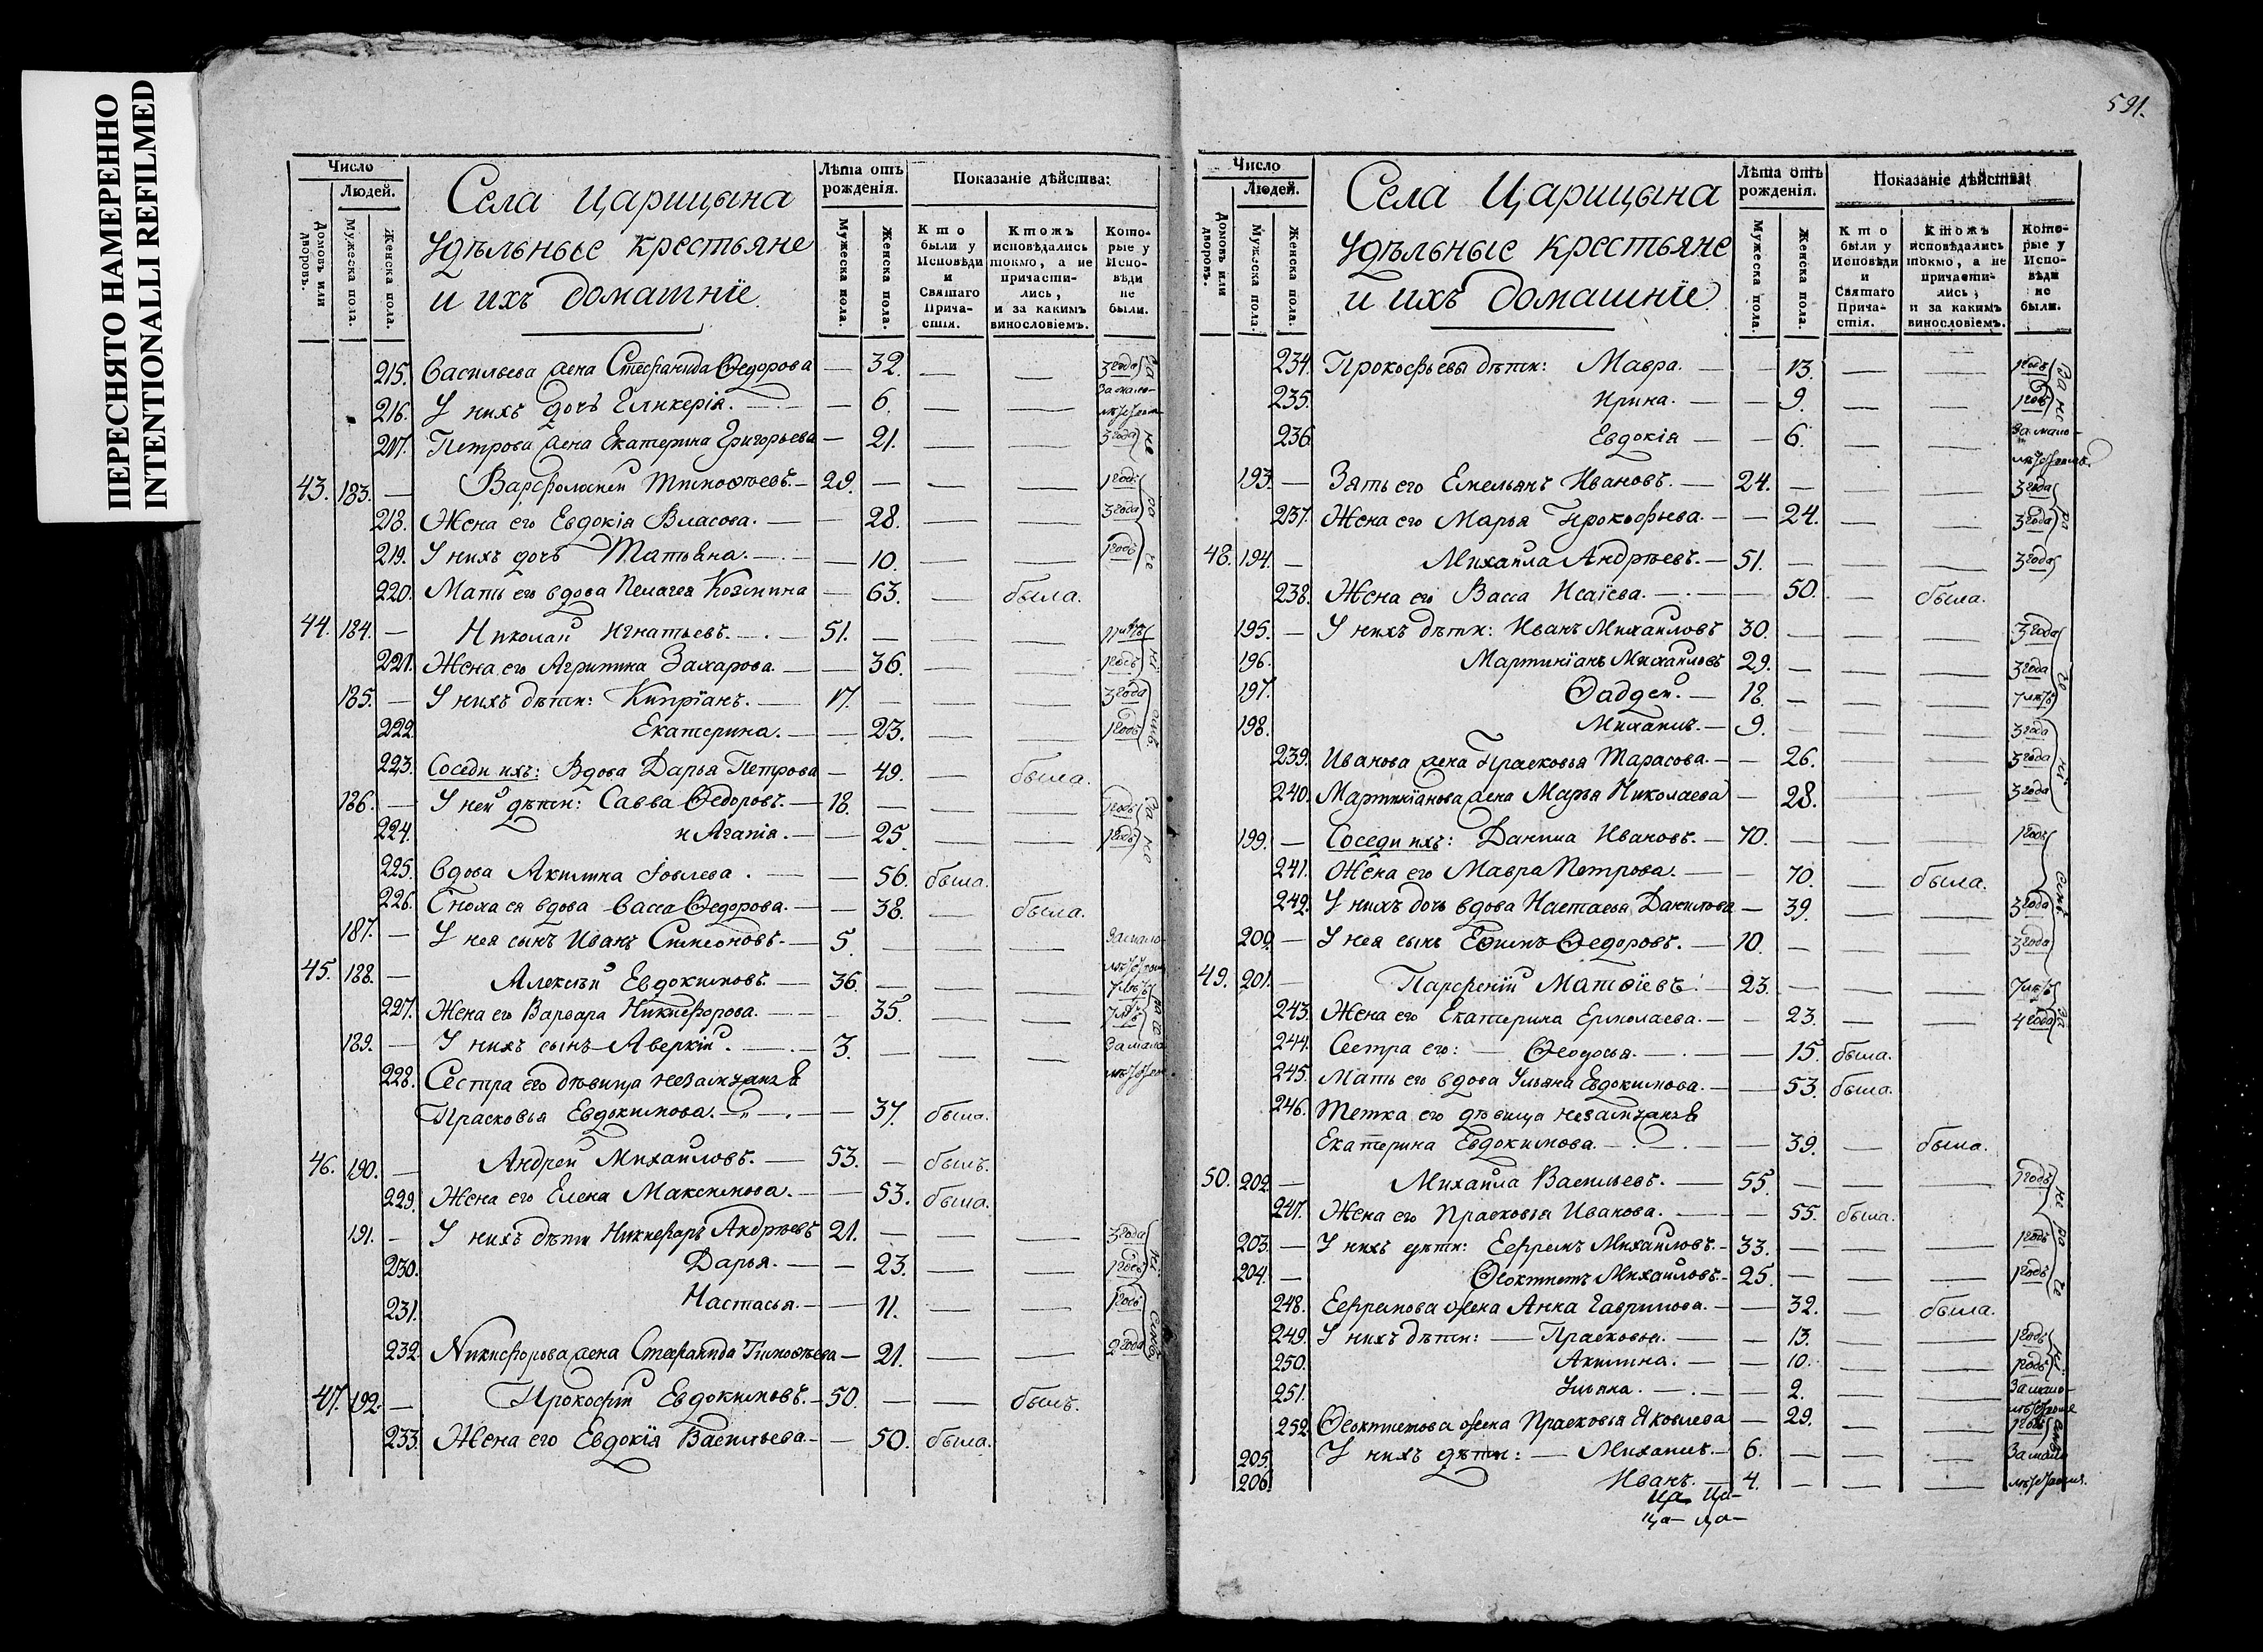 ПЕРЕСНЯТО НАМЕРЕННО
INTENTIONALLI REFILMED
Число
Людей.
Домовъ или дворовъ.
Мужеска пола.
Женска пола.
Села Царицына
Удѣльные крестьяне
и ихъ домашнїе.
Лѣта отъ рожденія.
Мужеска пола.
Женска пола.
Показаніе дѣйства:
Кто были у Исповѣди и Святаго Прича-стія.
Ктожъ исповѣдались токмо, а не причасти-лись, и за какимъ винословіемъ.
Кото-рые у Испо-вѣди не были.
215. Васильева жена Стефанида Ѳедорова — 32. — — 3 года
216. У нихъ дочь Гликерія. — 6. — — За мало-
лѣтст
217. Петрова жена Екатерина Григорьева — 21. — — 3 года
43. 183. — Варфоломей Тимоѳеевъ. — 29. — — — 1 годъ
218. Жена его Евдокія Власова. — 28. — — 3 года
219. У нихъ дочь Татьяна. — 10. — — 1 годъ
220. Мать его вдова Пелагея Козмина — 63. — была.
44. 184. — Николай Игнатьевъ. — 51. — — — лѣтъ
221. Жена его Агрипина Захарова. — 36. — — 1 годъ
185. — У нихъ дѣти: Кипріанъ. — 17. — — — 3 года
222. Екатерина. — 23. — — 1 годъ
223. Соседи ихъ: Вдова Дарья Петрова — 49. — была.
186. — У ней дѣти: Савва Ѳедоровъ. — 18. — — — 1 годъ
224. и Агапія. — 25. — — 1 годъ
225. Вдова Акилина Іовлева. — 56. была.
226. Сноха ея вдова Васса Ѳедорова. — 38. — была.
187. — У нея сынъ Иванъ Симеоновъ. — 5. — — — За мало-
лѣтст
45. 188. — Алексѣй Евдокимовъ. — 36. — — — 7 лѣтъ
227. Жена его Варвара Никифорова. — 35. — — 7 лѣтъ
189. — У нихъ сынъ Аверкій. — 3. — — — За мало
лѣтст
228. Сестра его дѣвица незамужняя
Прасковья Евдокимова. — 37. была.
46. 190. — Андрей Михайловъ. — 53. — былъ.
229. Жена его Елена Максимова. — 53. была.
191. — У нихъ дѣти Никифоръ Андрѣевъ 21. — — — 3 года
230. Дарья. — 23. — — 1 годъ
231. Настасья. — 11. — — 1 годъ
232. Никифорова жена Стефанида Тимоѳеева — 21. — — 2 года
47. 192. — Прокофій Евдокимовъ. — 50. — — былъ.
233. Жена его Евдокія Васильева. — 50. была.
591.
Число
Людей.
Домовъ или дворовъ.
Мужеска пола.
Женска пола.
Села Царицына
Удѣльные крестьяне
и ихъ домашнїе.
Лѣта отъ рожденія.
Мужеска пола.
Женска пола.
Показаніе дѣйства:
Кто были у Исповѣди и Святаго Прича-стія.
Ктожъ исповѣдались токмо, а не причасти-лись, и за какимъ винословіемъ.
Кото-рые у Испо-вѣди не были.
234. Прокофьевы дѣти: Мавра. — 13. — — 1 годъ
235. Ирина. — 9. — — 1 годъ
236. Евдокія — 6. — — За мало-
лѣтст
193. — Зять его Емельянъ Ивановъ. — 24. — — — 3 года
237. Жена его Марья Прокофьева. — 24. — — 3 года
48. 194. — Михайла Андрѣевъ. — 51. — — — 3 года
238. Жена его Васса Исаїева. — 50. — была.
195. — У нихъ дѣти: Иванъ Михайловъ 30. — — — 3 года
196. Мартиніанъ Михайловъ 29. — — — 3 года
197. Ѳаддей. — 18. — — — 7 лѣтъ
198. Михаилъ. — 9. — — — 3 года
239. Иванова жена Прасковья Тарасова. — 26. — — 3 года
240. Мартиніанова жена Марья Николаева — 28. — — 3 года
199. — Соседи ихъ: Данила Ивановъ. — 70. — — — 1 годъ
241. Жена его Мавра Петрова. — 70. — была.
242. У нихъ дочь вдова Настасья Данилова — 39. — — 3 года
200. — У нея сынъ Еѳимъ Ѳедоровъ. — 10. — — — 3 года
49. 201. — Парфеній Матѳіевъ. — 23. — — — 7 лѣтъ
243. Жена его Екатерина Ермолаева. — 23. — — 4 года
244. Сестра его: — Ѳеодосья. — 15. была.
245. Мать его вдова Ульяна Евдокимова. — 53. была.
246. Тетка его дѣвица незамужняя
Екатерина Евдокимова. — 39. — была.
50. 202. — Михайла Васильевъ. — 55. — — — 1 годъ
247. Жена его Прасковья Иванова. — 55. была.
203. — У нихъ дѣти: Ефремъ Михайловъ. — 33. — — — 1 годъ
204. — Ѳеоктистъ Михайловъ. — 25. — — — 1 годъ
248. Ефремова жена Анна Гаврилова. — 32. — была.
249. У нихъ дѣти: — Прасковья. — 13. — — 1 годъ
250. Акилина. — 10. — — 1 годъ
251. Ульяна. — 2. — — За мало-
252. Ѳеоктистова жена Прасковья Яковлева — 29. — — 1 годъ
205. У нихъ дѣти: — Михаилъ. — 6. — — — За мало
206. Иванъ. — 4. — — —